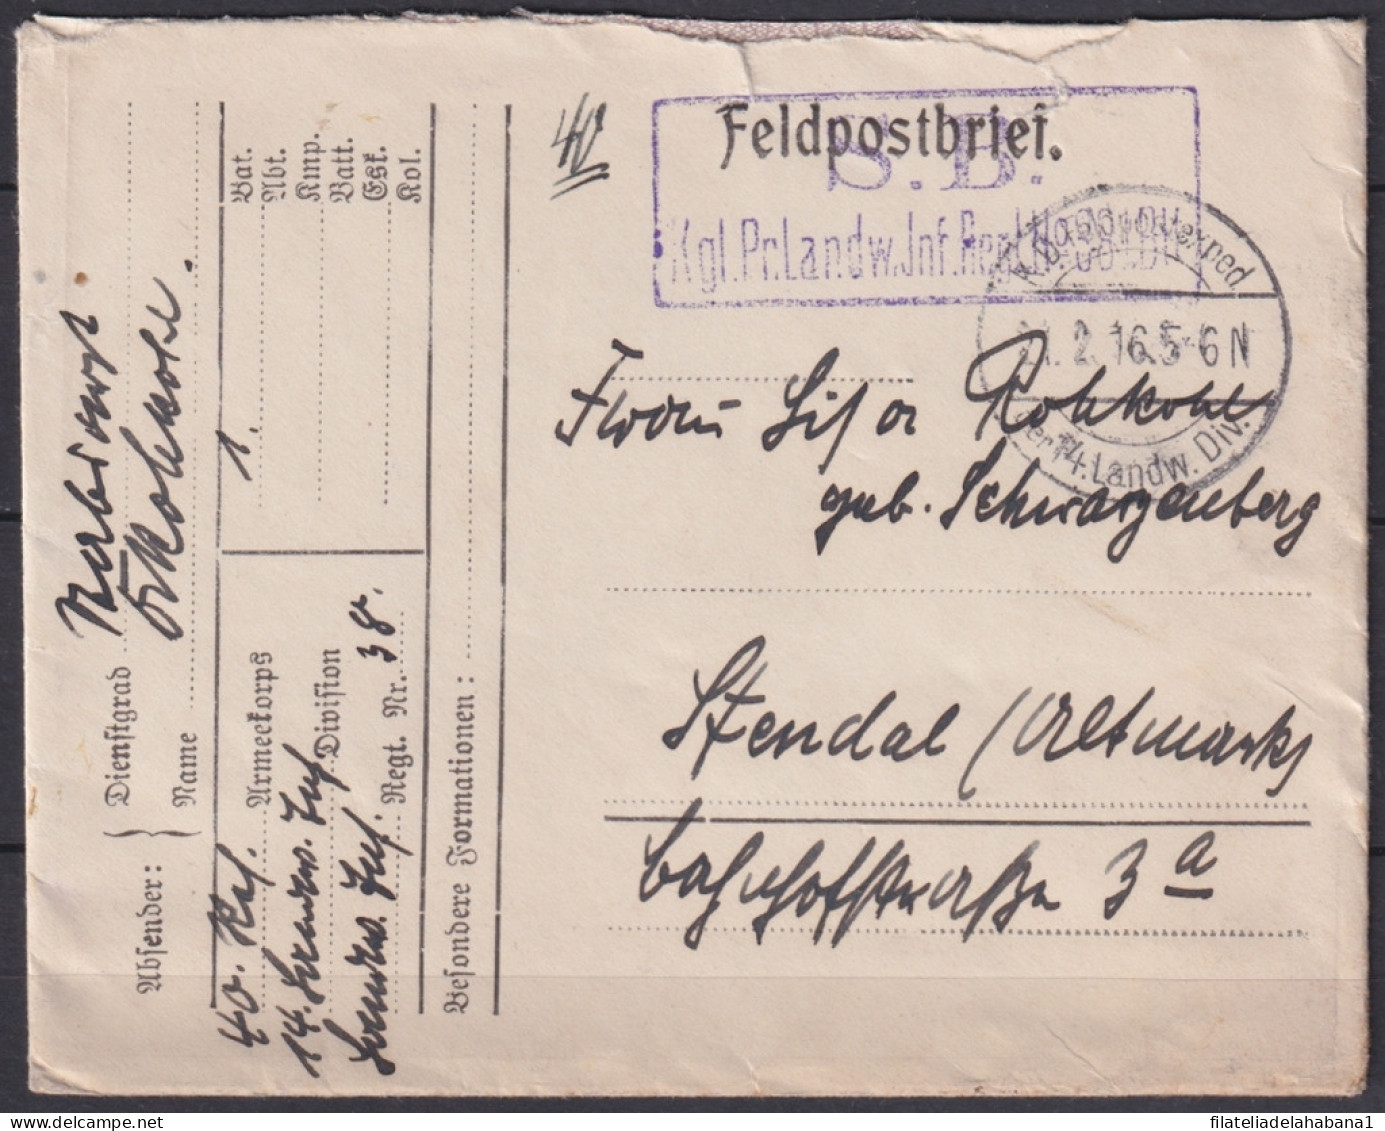 Feldpostbrief.
S.B.
Kgl. Pr. Landw. Inf. Regt.
K.D. Feldpostexped.
2.16 5-6 N
der 14. Landw. Div.
40
Frau Lisa Rohkohl
geb. Schwarzenberg
Stendal (Altmark)
Bahnhofstraße 3 a
Absender:
Dienstgrad
Name Rohkohl.
40. Res. Armeekorps
14. Landw. Inf. Division
Landw. Inf. Regt. Nr. 38.
1. Bat.
Abt.
Kmp.
Batt.
Esk.
Kol.
Besondere Formationen:
filateliadelahabana1